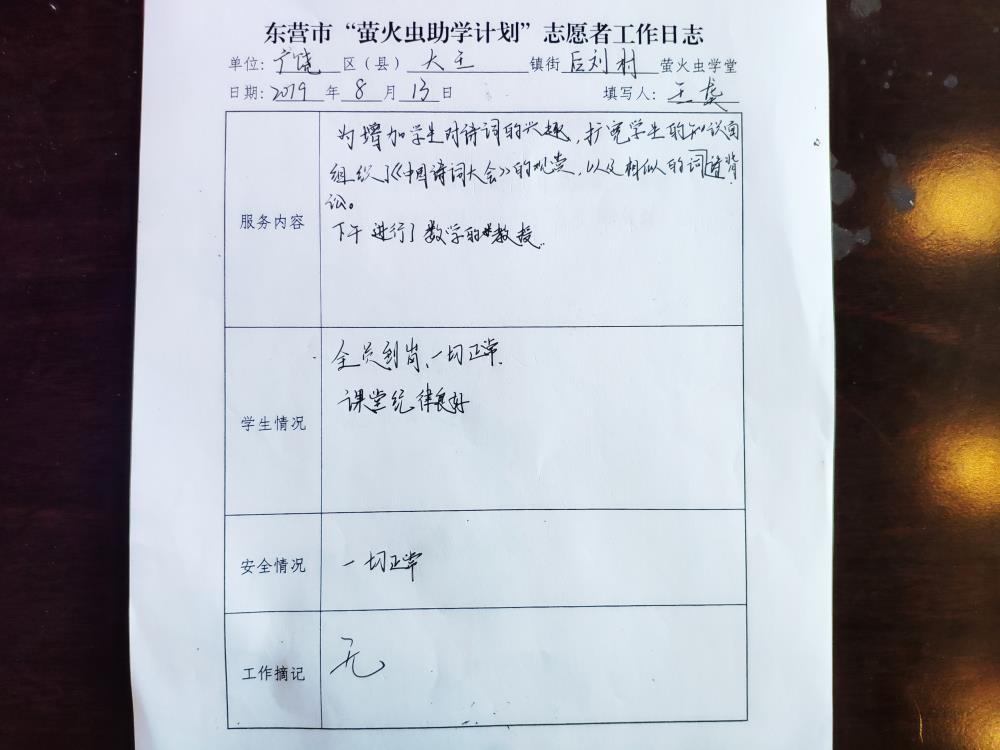 东营市“萤火虫助学计划”志愿者工作日志
单位：广饶 区（县） 大王 镇街 后刘村 萤火虫学堂
日期：2019 年 8 月 13 日 填写人：王
服务内容
为增加学生对诗词的兴趣，扩宽学生的知识面
组织了《中国诗词大会》的观赏，以及相似的词谱背
讼。
下午进行了数学的教授.
学生情况
全员到岗、一切正常.
课堂纪律良好
安全情况
一切正常
工作摘记
无